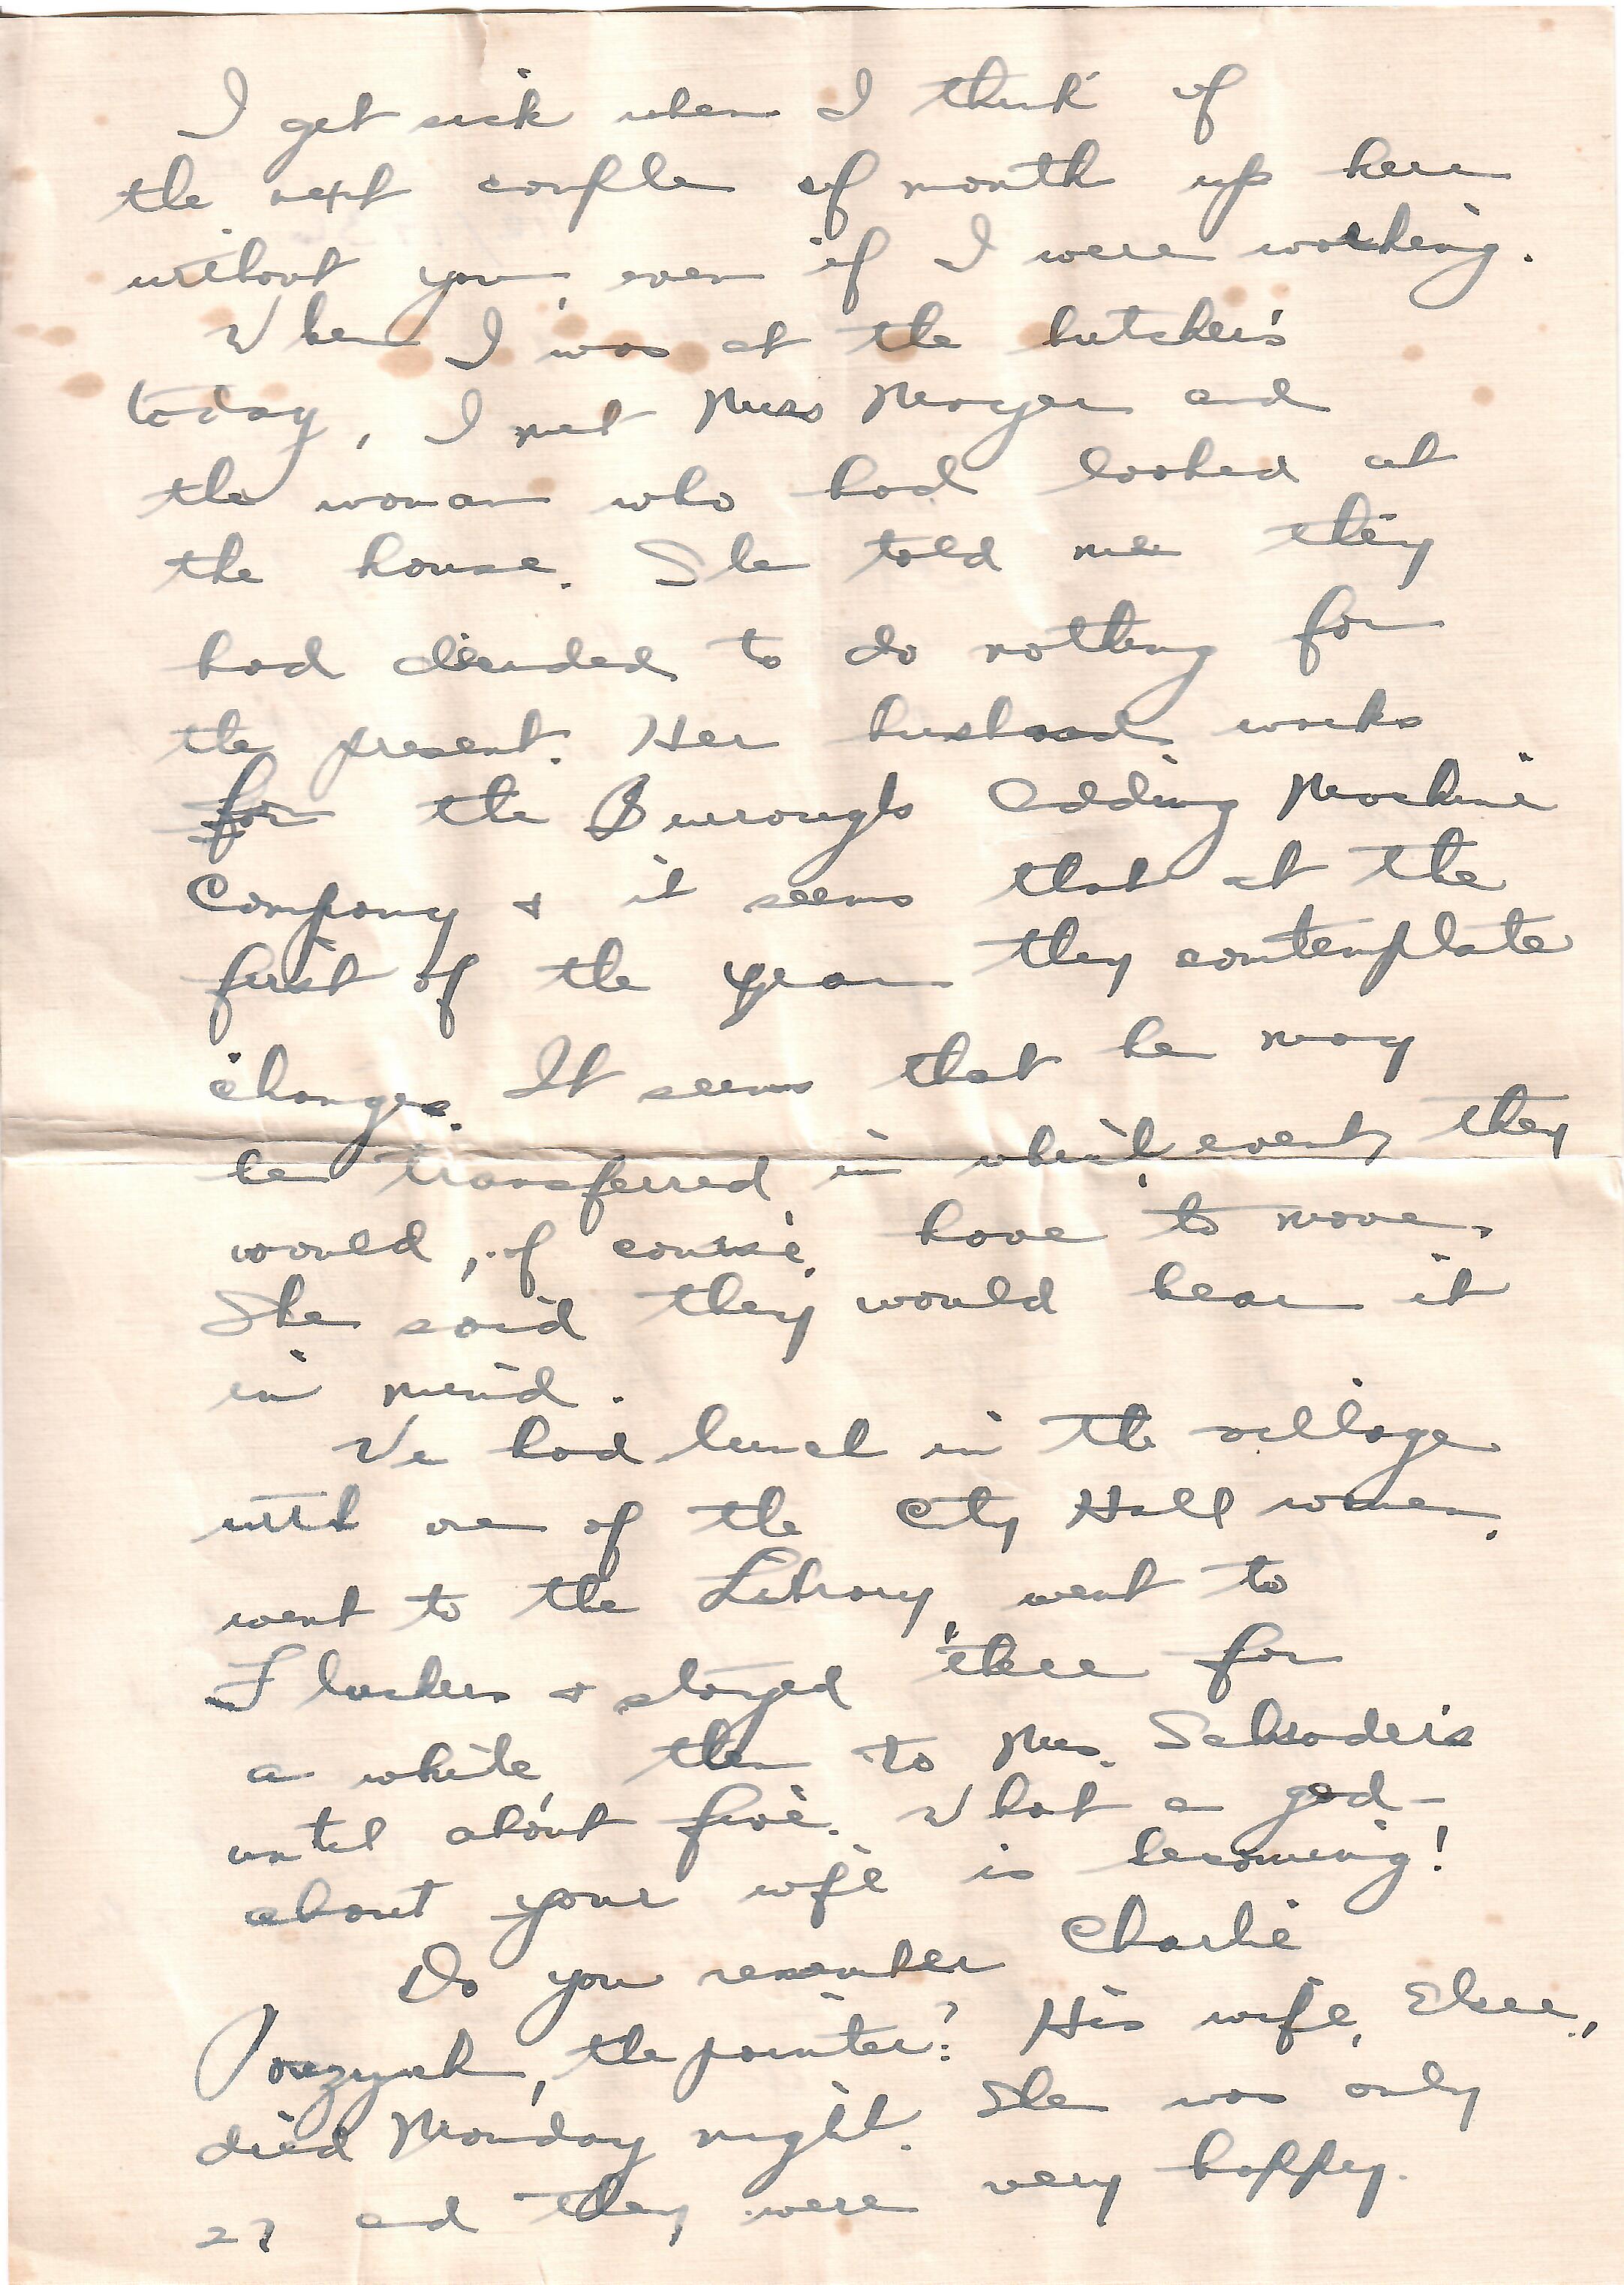 I get sick when I think of
the next couple of month up here
without you, even if I were working.
When I was at the butcher's
today, I met Miss Moyer and
the woman who had looked at
the house. She told me they
had decided to do nothing for
the present. Her husband works
for the Burroughs Adding Machine
Company & it seems that at the
first of the year they contemplate
changes. It seems that he may
be transferred in which event, they
would, of course, have to move.
She said they would bear it
in mind.
We had lunch in the village
with one of the City Hall women,
went to the Library, went to
& stayed there for
a while, then to Mrs. Schroder's
until about five. What a gad-
about your wife is becoming!
Do you remember Charlie
the painter? His wife, Elsie,
died Monday night. She was only
27 and they were very happy.